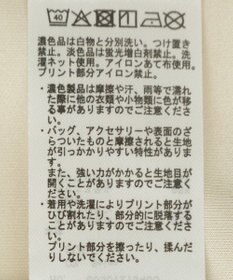 40
濃色品は白物と分別洗い。つけ置き
禁止。淡色品は蛍光増白剤禁止。洗
濯ネット使用。アイロンあて布使用。
プリント部分アイロン禁止。
・濃色製品は摩擦や汗、雨等で濡れ
た際に他の衣類や小物類に色が移
る事がありますのでご注意くださ
い。
・バッグ、アクセサリーや表面のざ
らついたものと摩擦されると生地
が引っかかりやすい特性がありま
す。
また、強い力がかかると生地目が
開くことがありますのでご注意く
ださい。
・着用や洗濯によりプリント部分が
ひび割れたり、部分的に脱落する
ことがありますのでご注意くださ
い。
プリント部分を擦ったり、揉んだ
りしないでください。